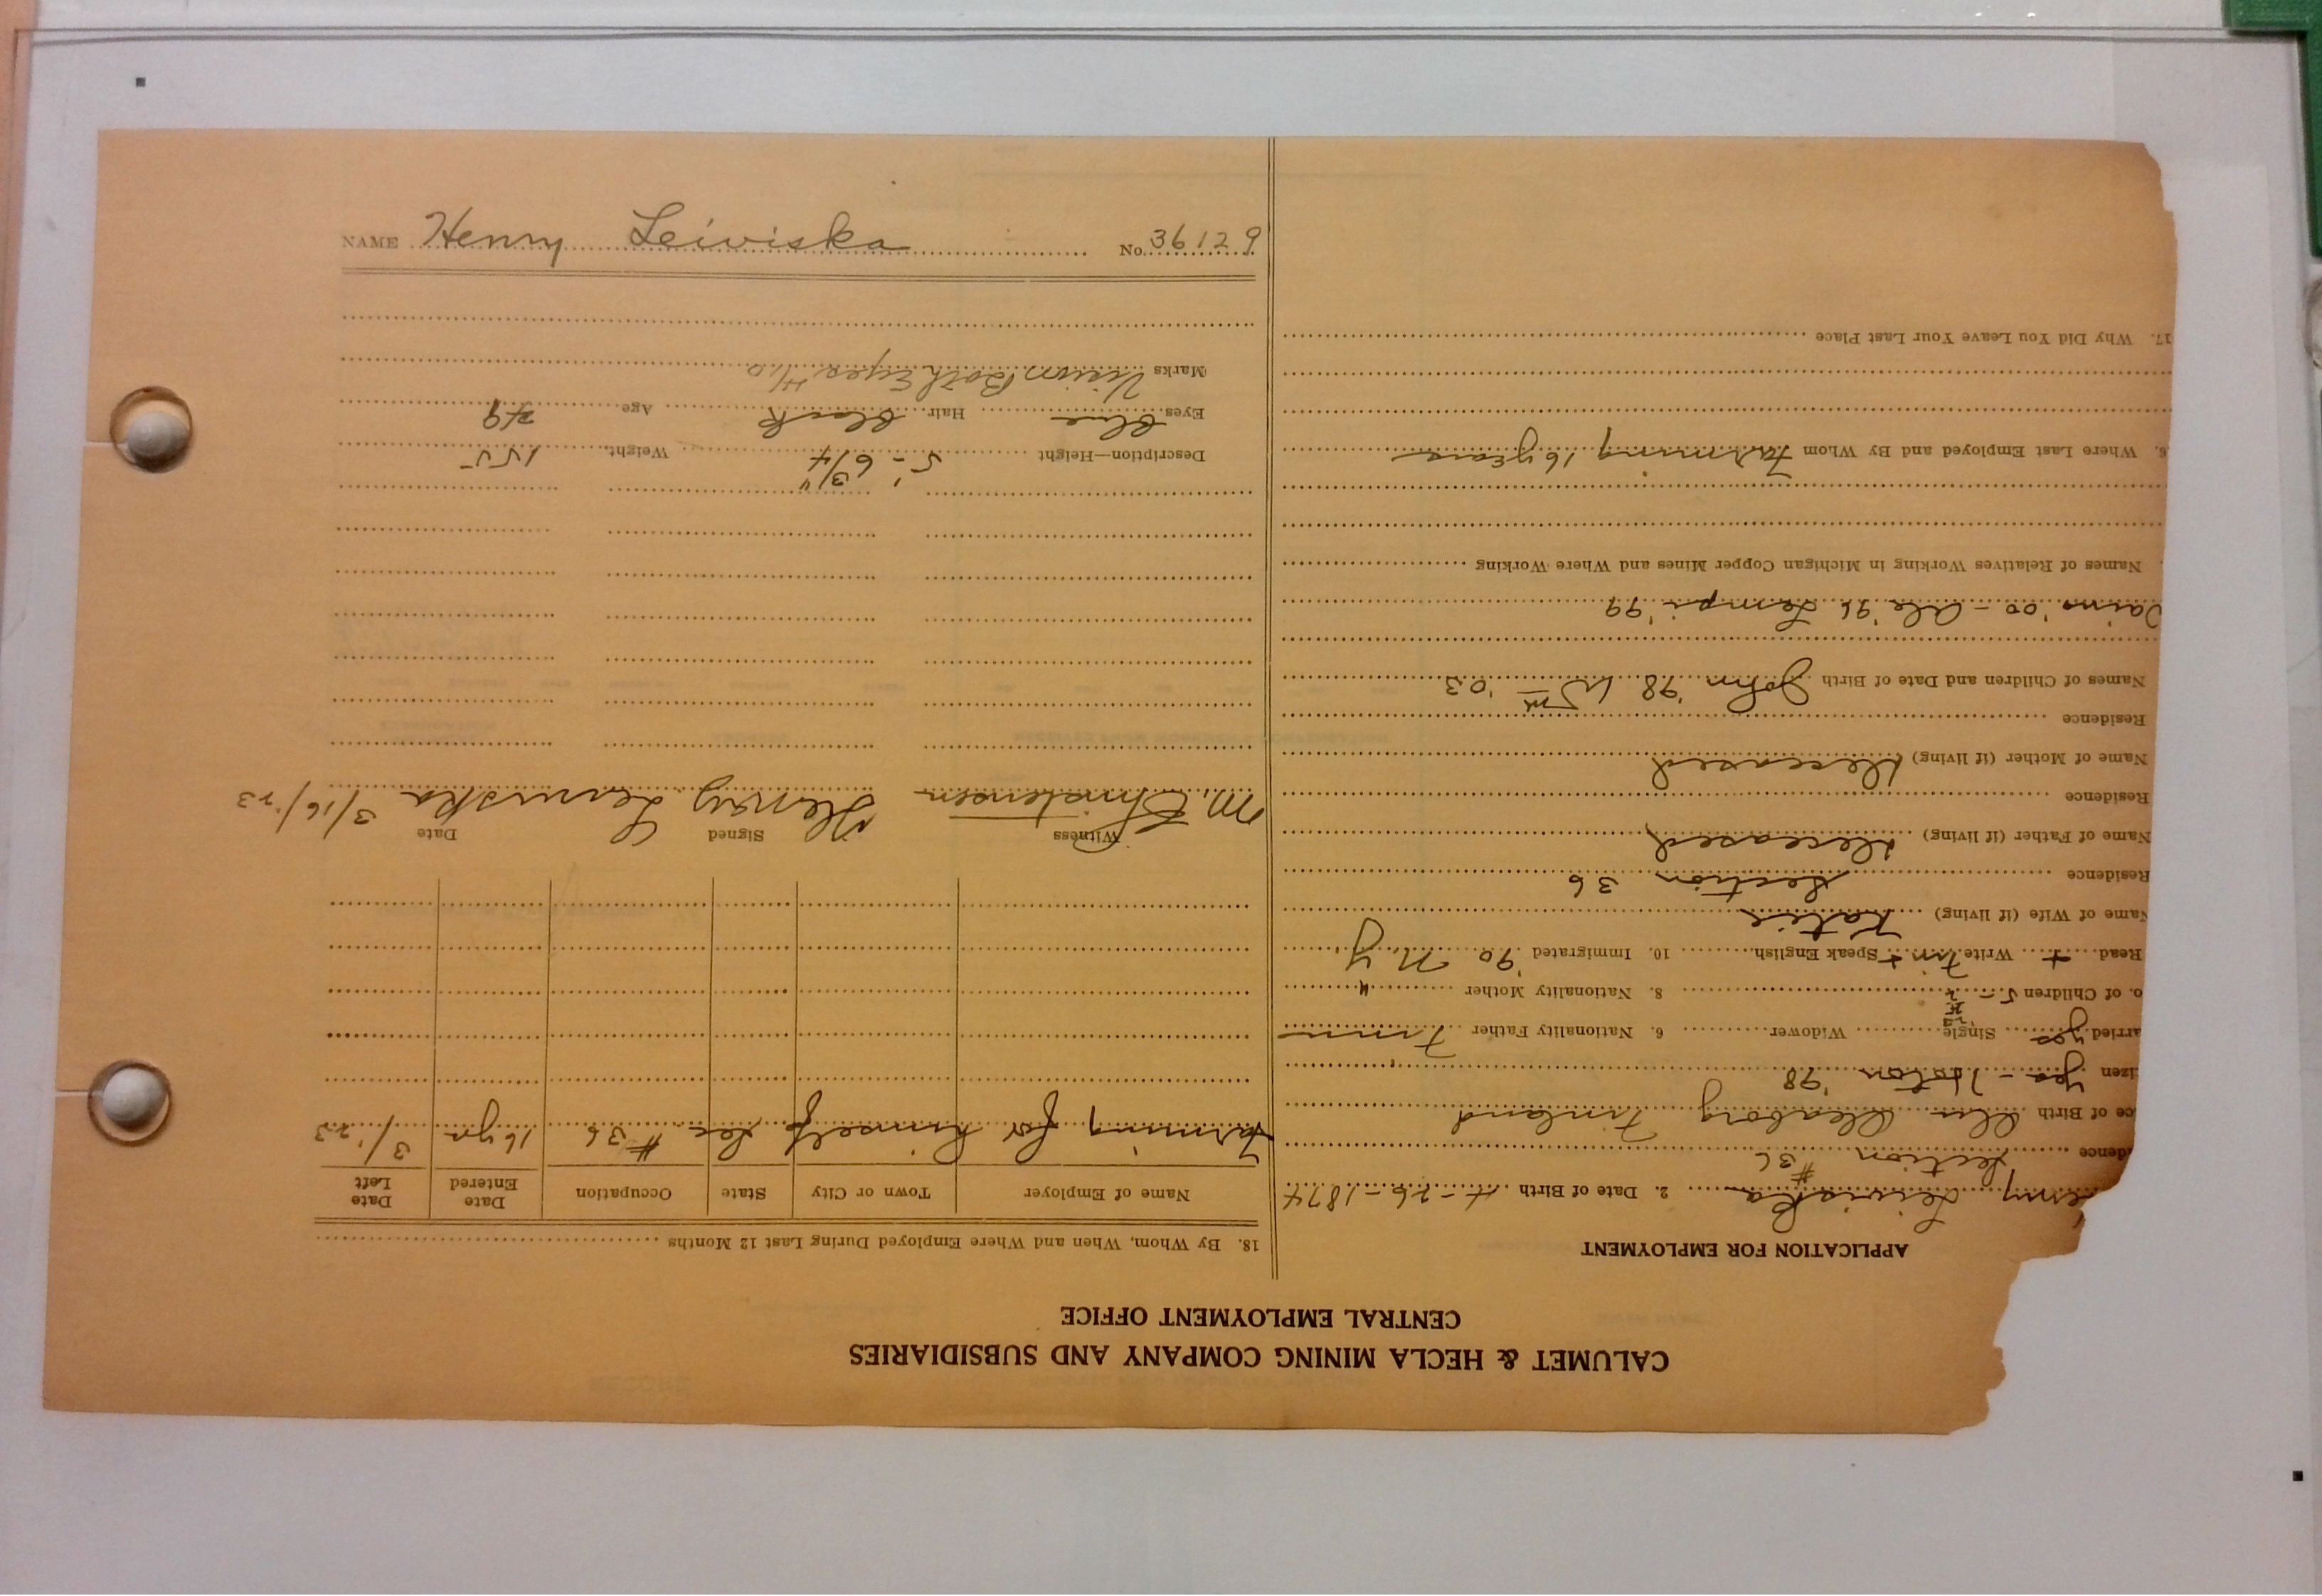 CALUMET & HECLA MINING COMPANY AND SUBSIDIARIES
CENTRAL EMPLOYMENT OFFICE
APPLICATION FOR EMPLOYMENT
enry Leiviska 2. Date of Birth 4-26-1874
dence Section #36
ce of Birth Uleaborg Finland
izen yes - '98
arried yes Single Widower 6. Nationality Father Finn
o. of Children 5 8. Nationality Mother "
Read + Write Finn + Speak English 10. Immigrated '90 N.Y.
Name of Wife (if living) Katie
Residence Section 36
Name of Father (if living) deceased
Residence
Name of Mother (if living) deceased
Residence
Names of Children and Date of Birth John '98 Wm '03
'00 - '96 Lempi '99
Names of Relatives Working in Michigan Copper Mines and Where Working
6. Where Last Employed and By Whom Farming 16 years
17. Why Did You Leave Your Last Place
18. By Whom, When and Where Employed During Last 12 Months
Name of Employer Town or City State Occupation Date Entered Date Left
Farming for himself Sec #36 16 yrs 3/'23
Witness Signed Date
M. Christensen Henry Leiviska 3/16/23
Description—Height 5'-6 3/4" Weight 155
Eyes blue Hair black Age 49
Marks Vision Both Eyes
NAME Henry Leiviska No. 36129